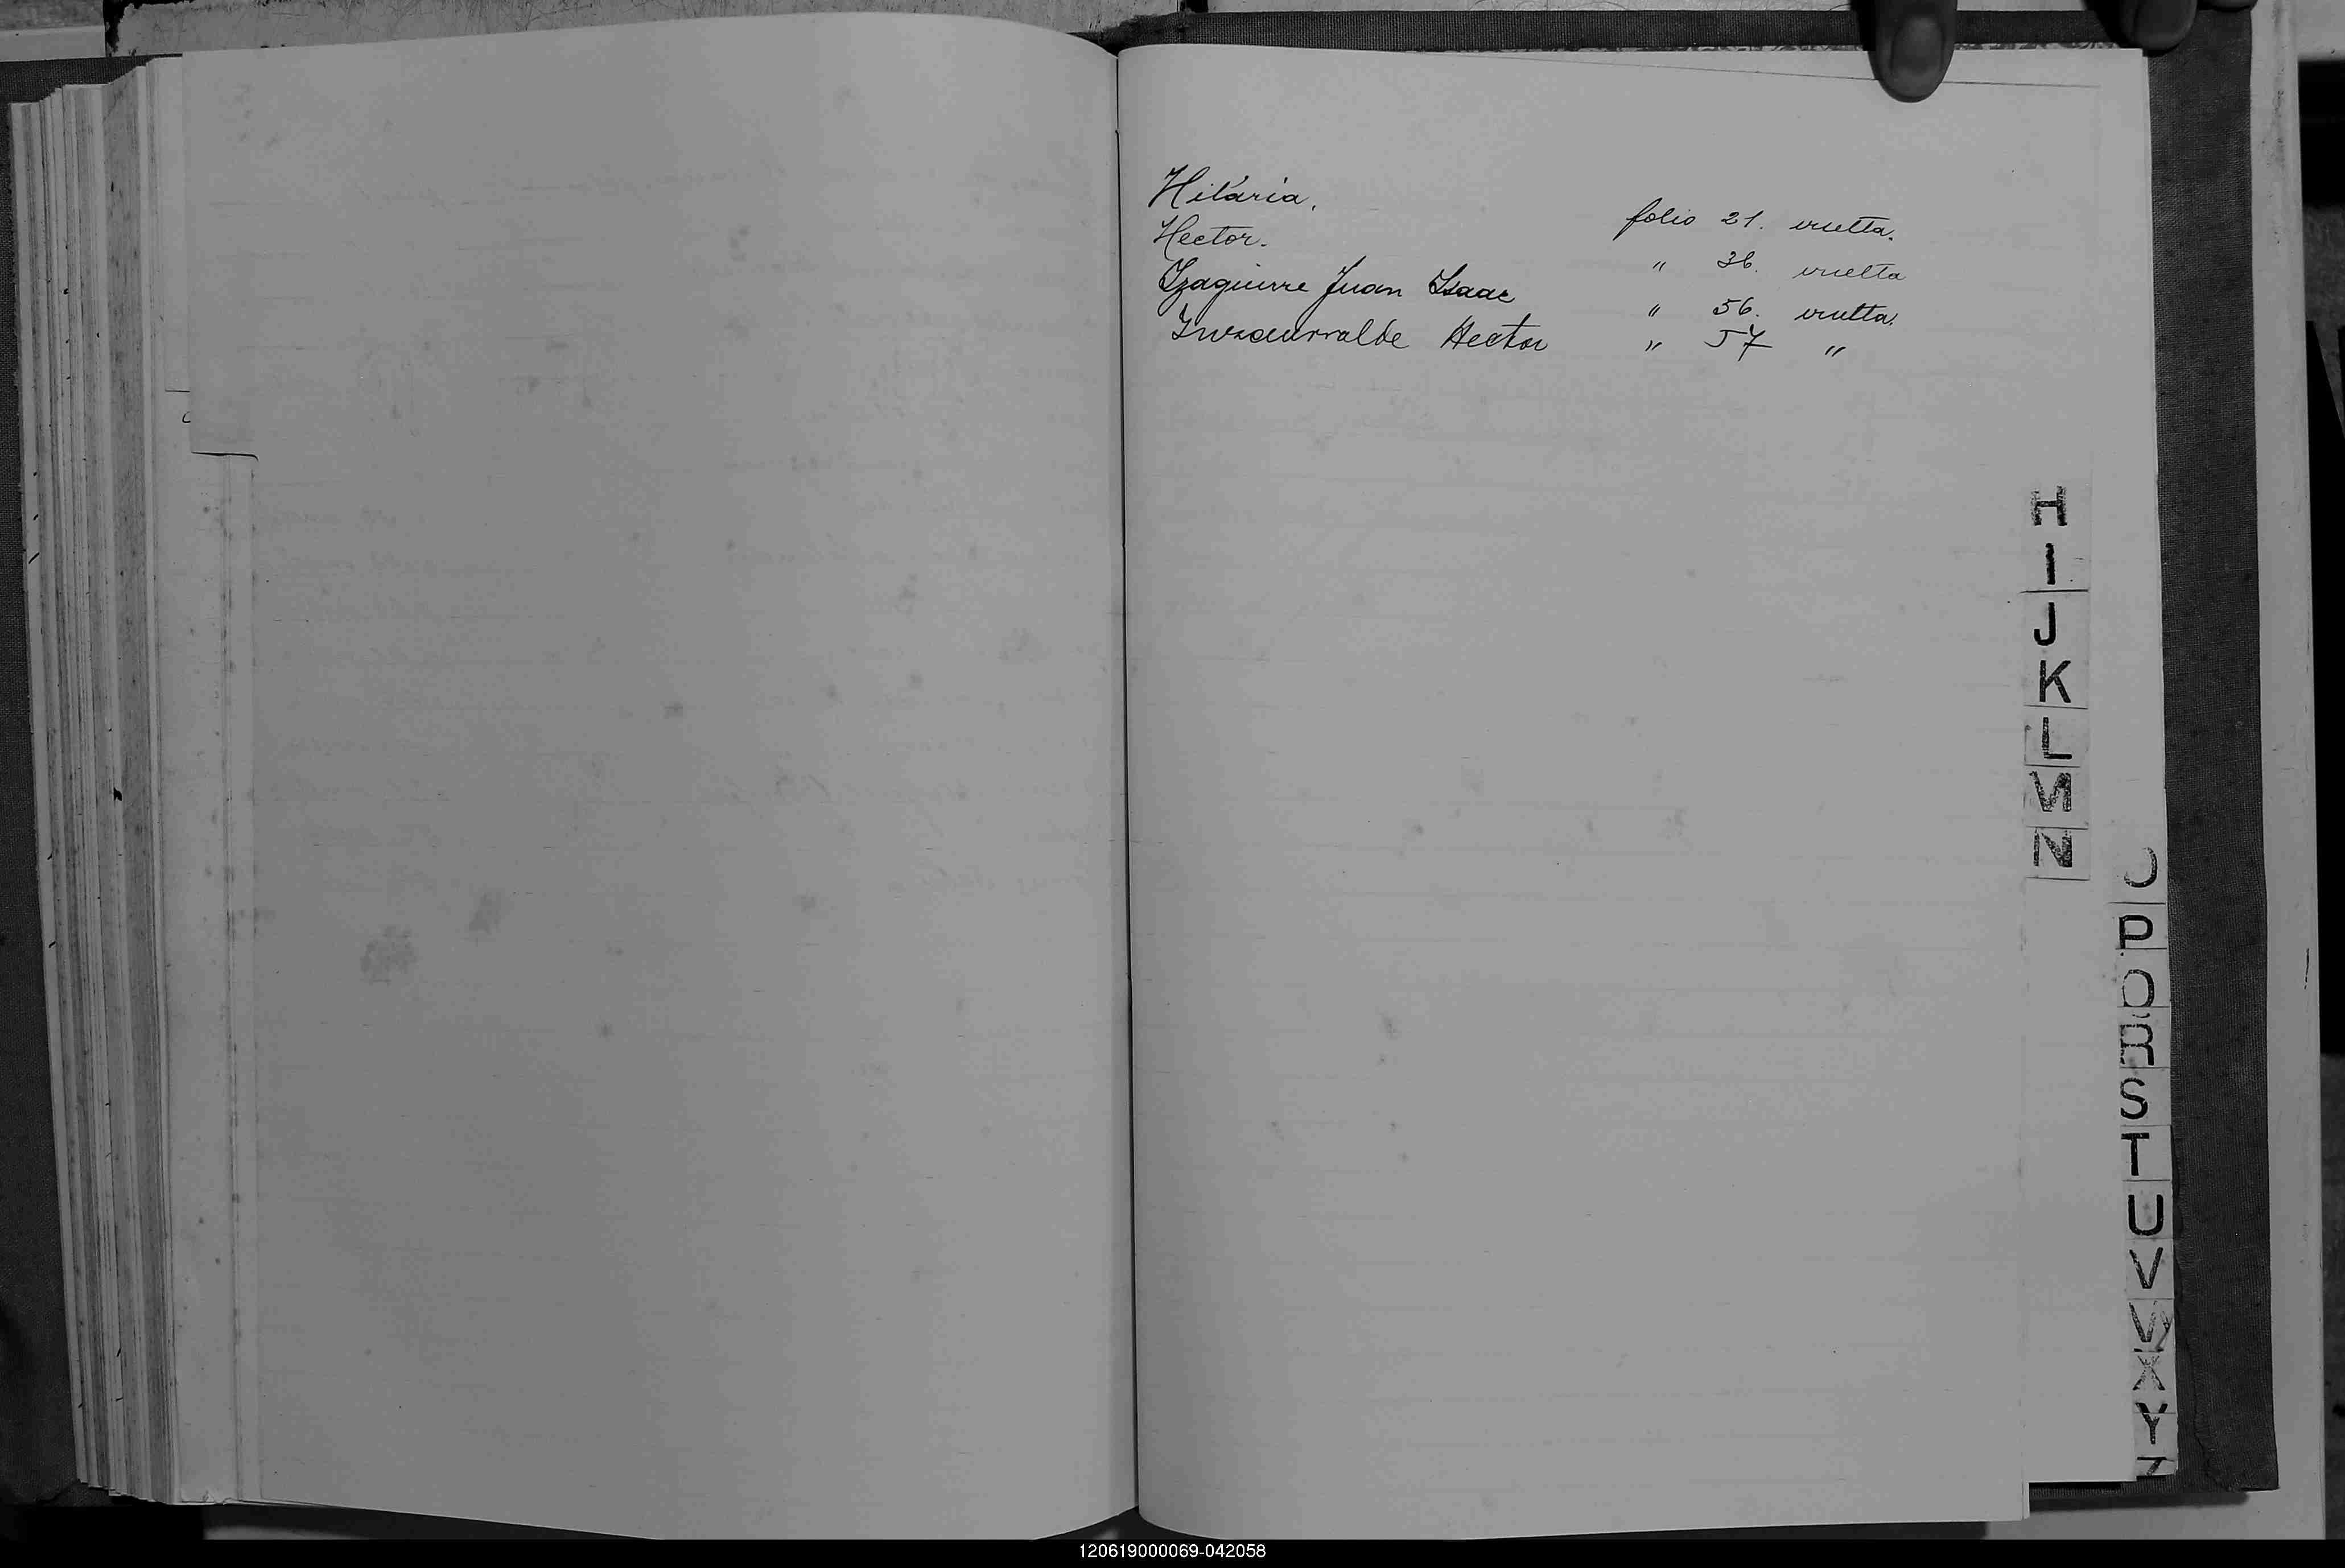 Hilaria. folio 21. vuelta.
Hector. " 36. vuelta
Izaguirre Juan Isaac " 56. vuelta.
Hector " 57 "
H
I
J
K
L
M
N
O
P
Q
R
S
T
U
V
W
X
Y
Z
120619000069-042058